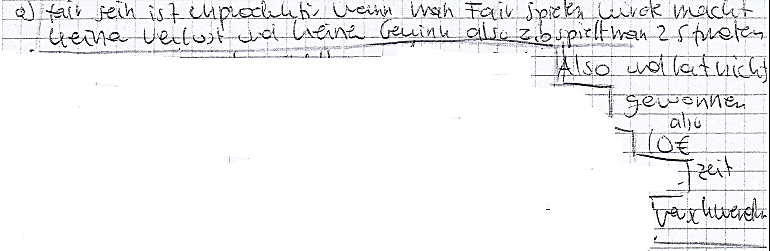 a) fair sein ist unproduktiv wenn man Fair spielen würde macht
keine verlust und keine Gewinn also z.b spielt man 2 Spielen
Also und hat nicht
gewonnen
also
10€
zeit
verschwend